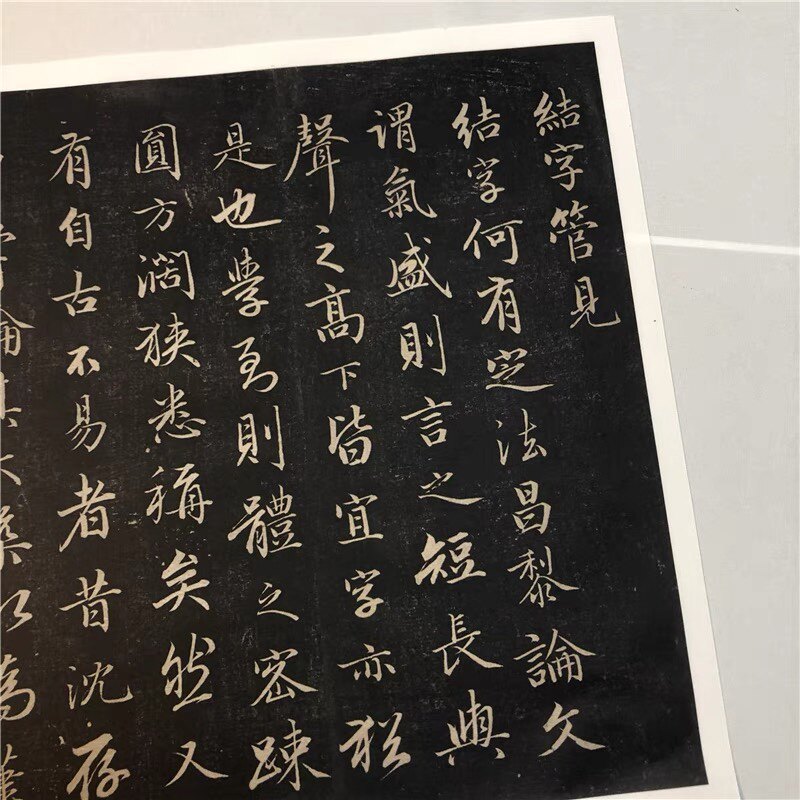 結字管見
結字何有定法昌黎論文
謂氣盛則言之短長與
聲之高下皆宜字亦猶
是也學到則體之密疎
圓方濶狹悉稱矣然又
有自古不易者昔沈存